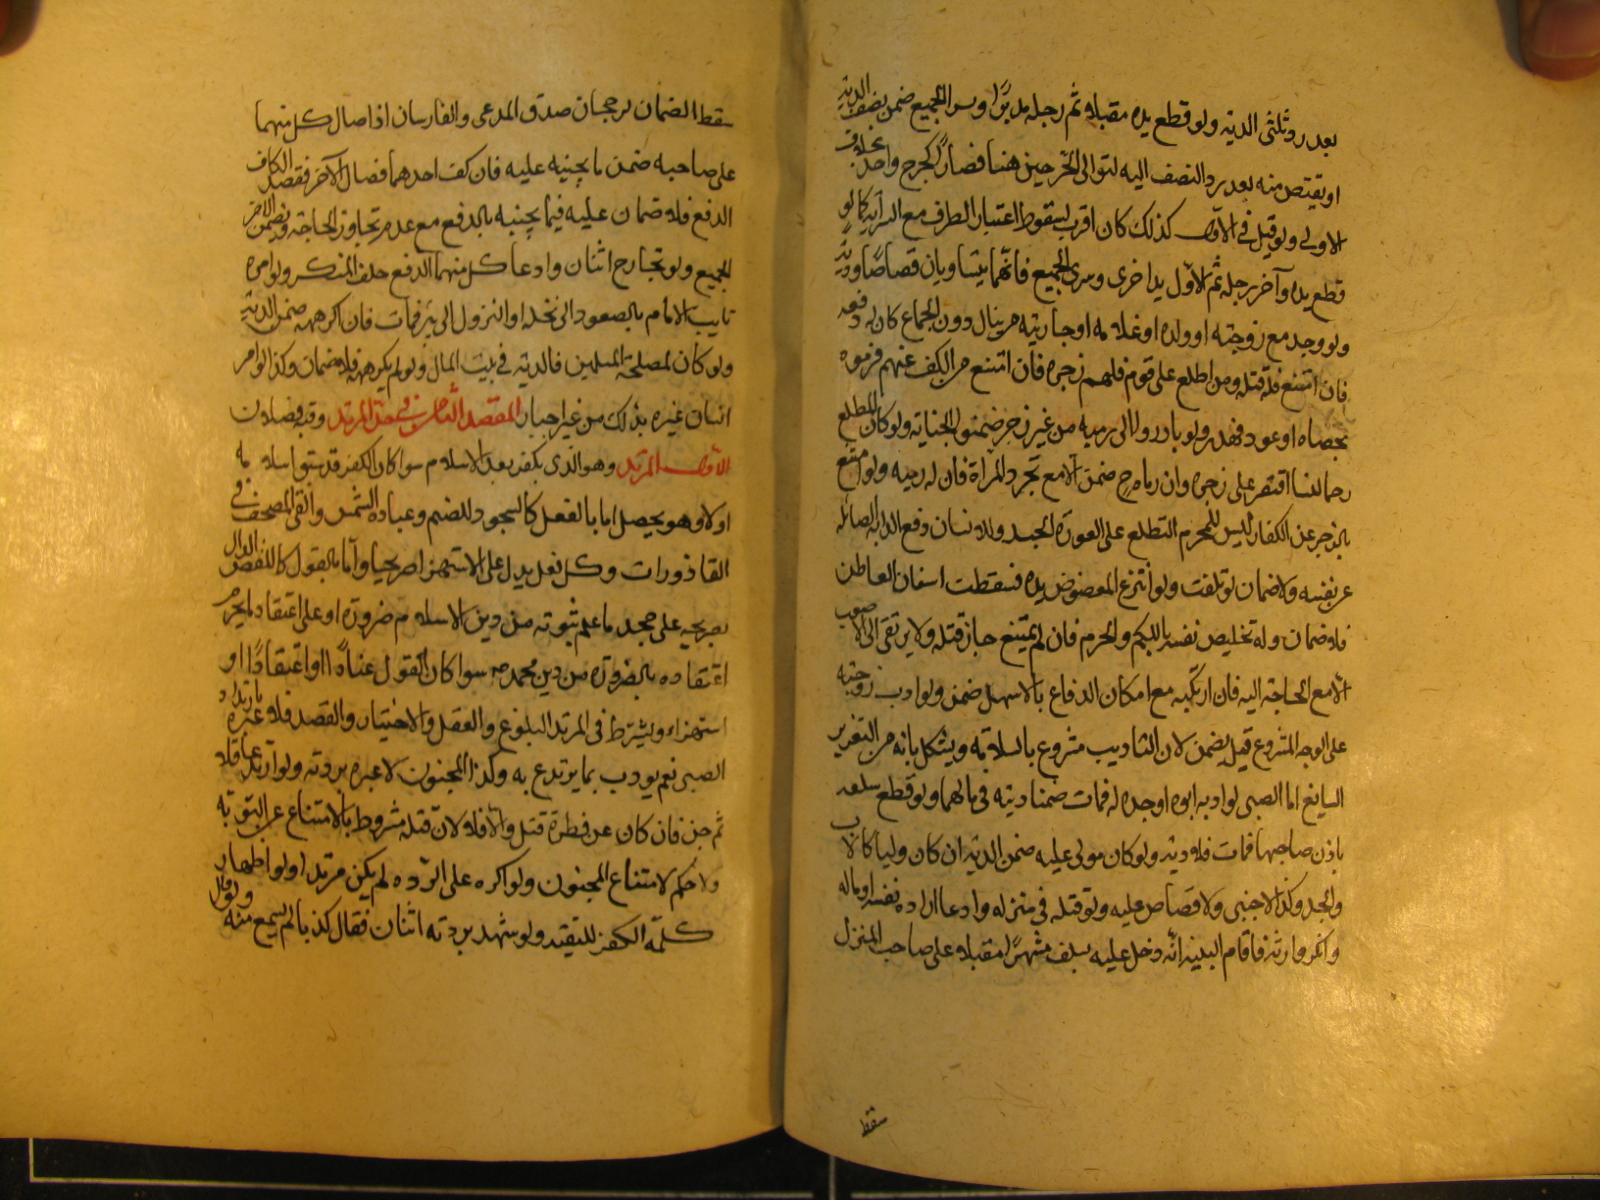 بعد رد ثلثى الدية ولو قطع يده مقبلا ثم رجله مدبرا وسرا الجميع ضمن نصف الدية
او يقتص منه بعد رد النصف اليه لتوالى الجرحين هنا فصار كجرح واحد بخلاف
الاولى ولو قيل فى الاول كذلك كان اقرب لسقوط اعتبار الطرف مع السراية كما لو
قطع يده وآخر رجله ثم الاول يدا اخرى وسرى الجميع فانهما يتساويان قصاصا ودية
ولو وجد مع زوجته او ولده او غلامه او جاريته من ينال دون الجماع كان له دفعه
فان امتنع فله قتله ومن اطلع على قوم فلهم زجره فان امتنع من الكف عنهم فرموه
بحصاه او عود فهدر ولو بادروا الى رميه من غير زجر ضمنوا الجناية ولو كان المطلع
رحما لنسا اقتصر على زجره وان رماه ح ضمن الا مع تجرد المراة فان له رميه ولو امتنع
بالزجر عن الكف اذ ليس للمحرم التطلع على العورة الجسد وللانسان دفع الدابة الصائلة
عن نفسه ولا ضمان لو تلفت ولو انتزع المعضوض يده فسقطت اسنان العاض
فلا ضمان وله تخليص نفسه باللكم والجرح فان لم يمتنع جاز قتله ولا يرتقى الى الاصعب
الا مع الحاجة اليه فان ارتكبه مع امكان الدفاع بالاسهل ضمن ولو ادب زوجته
على الوجه المشروع قيل يضمن لان التاديب مشروع بالسلامة ويشكل بانه من التعزير
السايغ اما الصبى لو ادبه ابوه او جده له فمات ضمنا ديته فى مالهما ولو قطع سلعه
باذن صاحبها فمات فلا دية ولو كان مولى عليه ضمن الدية ان كان وليا كالاب
والجد وكذا الاجنبى ولا قصاص عليه ولو قتله فى منزله وادعا اراده نفسه او ماله
وانكر وارثه فاقام البينه انه دخل عليه بسيف مشهر مقبلا على صاحب المنزل
سقط
سقط الضمان لرجحان صدق المدعى والفارسان اذا صال كل منهما
على صاحبه ضمن ما يجنيه عليه فان كف احدهما فصال الآخر فقصد الكاف
الدفع فلا ضمان عليه فيما يجنيه بالدفع مع عدم تجاوز الحاجة ويضمن الآخر
الجميع ولو تجارح اثنان وادعا كل منهما الدفع حلف المنكر ولو امره
نايب الامام بالصعود الى نخلة او النزول الى بئر فمات فان اكرهه ضمن الدية
ولو كان لمصلحة المسلمين فالدية فى بيت المال ولو لم يكرهه فلا ضمان وكذا لو امر
انسان غيره بذلك من غير اجبار المقصد الثامن فى حد المرتد وفيه فصلان
الاول المرتد وهو الذى يكفر بعد الاسلام سوا كان الكفر قد سبق اسلامه
اولا وهو يحصل اما بالفعل كالسجود للصنم وعباده الشمس والقى المصحف فى
القاذورات وكل فعل يدل على الاستهزا صريحا واما بالقول كاللفظ الدال
بصريحه على جحد ما علم ثبوته من دين الاسلام ضرورة او على اعتقاد ما يحرم
اعتقاده بالضرورة من دين محمد ص سوا كان القول عنادا او اعتقادا او
استهزاء ويشترط فى المرتد البلوغ والعقل والاختيار والقصد فلا عبرة بارتداد
الصبى نعم يودب بما يرتدع به وكذا المجنون لا عبره بردته ولو ارتد عاقلا
ثم جن فان كان عن فطرة قتل والا فلا لان قتله مشروط بالامتناع عن التوبة
ولا حكم لامتناع المجنون ولو اكره على الرده لم يكن مرتدا ولو اظهار
كلمة الكفر للتقيه ولو شهد بردته اثنان فقال كذبا لم يسمع منه ولو قال